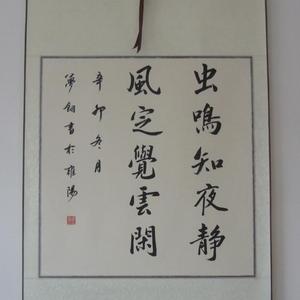 虫鳴知夜静
風定覺雲閑
辛卯冬月
夢钢書於睢陽